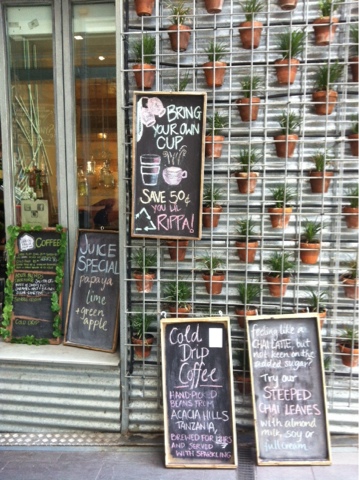 BRING
YOUR OWN
CUP
SAVE 50¢
YOU LIL
RIPPA!
COFFEE
COLD DRIP
JUICE
SPECIAL
papaya
lime
+ green
apple
Cold
Drip
Coffee
HAND-PICKED
BEANS FROM
ACACIA HILLS
TANZANIA,
BREWED FOR
AND SERVED
WITH SPARKLING
Feeling like a
CHAI LATTE, but
not keen on the
added sugar?
Try our
STEEPED
CHAI LEAVES
with almond
milk, soy or
full cream